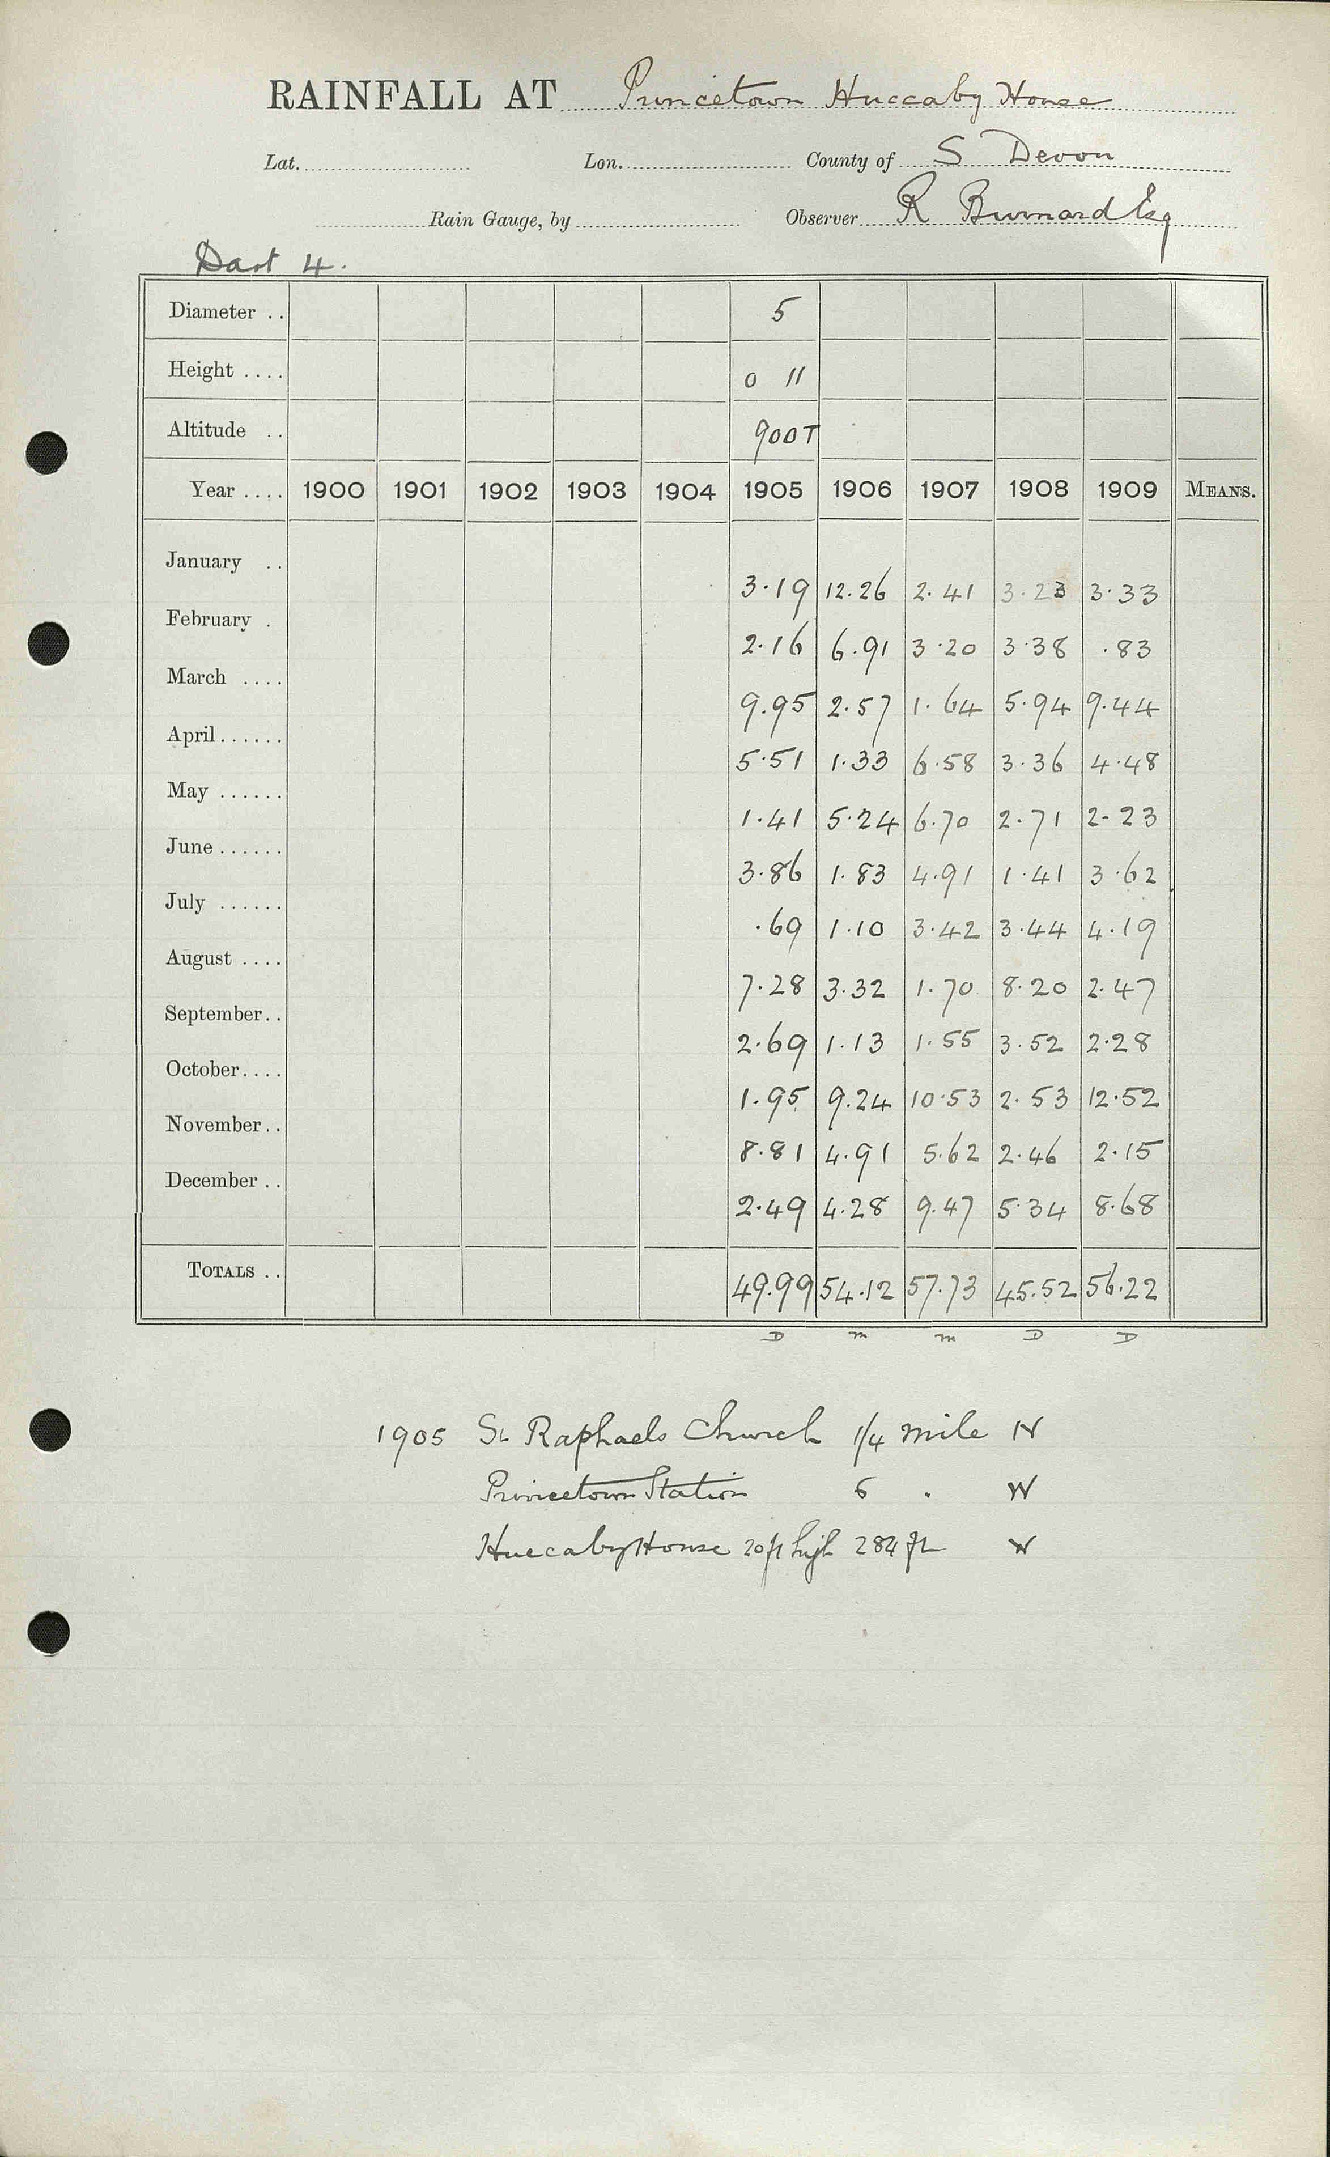 RAINFALL AT Princetown Huccaby House
Lat. Lon. County of S Devon
Rain Gauge, by Observer R Burnard Esq
Dart 4.
Diameter .. 5
Height .... 0 11
Altitude .. 900T
Year .... 1900 1901 1902 1903 1904 1905 1906 1907 1908 1909 MEANS.
January .. 3.19 12.26 2.41 3.23 3.33
February . 2.16 6.91 3.20 3.38 .83
March .... 9.95 2.57 1.64 5.94 9.44
April...... 5.51 1.33 6.58 3.36 4.48
May ...... 1.41 5.24 6.70 2.71 2.23
June...... 3.86 1.83 4.91 1.41 3.62
July ...... .69 1.10 3.42 3.44 4.19
August .... 7.28 3.32 1.70 8.20 2.47
September.. 2.69 1.13 1.55 3.52 2.28
October.... 1.95 9.24 10.53 2.53 12.52
November.. 8.81 4.91 5.62 2.46 2.15
December .. 2.49 4.28 9.47 5.34 8.68
TOTALS .. 49.99 54.12 57.73 45.52 56.22
D m m D D
1905 St Raphaels Church 1/4 mile N
Princetown Station 6 . W
Huccaby House 20ft high 284 ft W